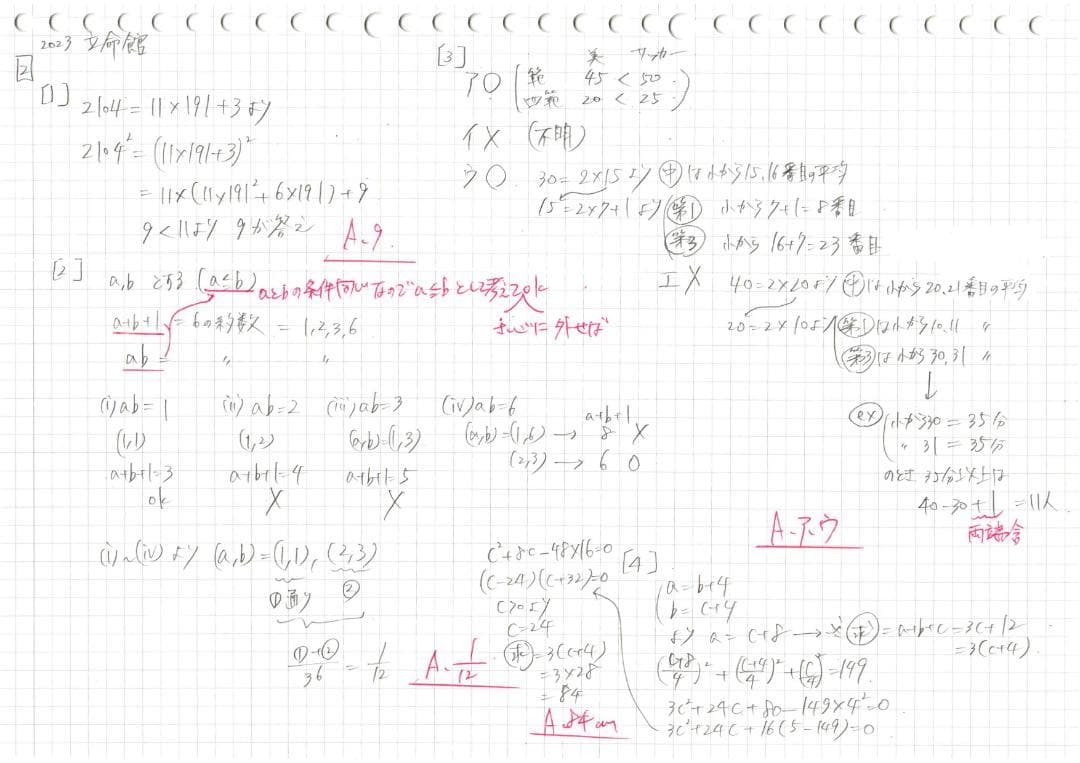 2023 立命館
2
[1]
2104=11×191+3より
2104²=(11×191+3)²
=11×(11×191²+6×191)+9
9<11より 9が答え
A.9
[2]
a,bとする (a≦b)
aとbの条件同じなのでa≦bとして考えてok
さいごに外せば
a+b+1=6の約数=1,2,3,6
ab= 〃 〃
(i)ab=1 (ii)ab=2 (iii)ab=3 (iv)ab=6
a+b+1
(1,1) (1,2) (a,b)=(1,3) (a,b)=(1,6)→ 8 ×
(2,3)→ 6 ○
a+b+1=3 a+b+1=4 a+b+1=5
ok × ×
(i)~(iv)より (a,b)=(1,1),(2,3)
①通り ②
①+②/36=1/12
A.1/12
[3]
美 サッカー
ア○ 範 45<50
四範 20<25
イ× (不明)
ウ○ 30=2×15より㊥は小から15,16番目の平均
15=2×7+1より 第1 小から7+1=8番目
第3 小から16+7=23番目
エ× 40=2×20より㊥は小から20,21番目の平均
20=2×10より 第1は小から10,11 〃
第3は小から30,31 〃
↓
ex 小から30=35分
〃 31=35分
のとき 35分以上は
40-30+1=11人
両端含
A.ア,ウ
[4]
a=b+4
b=c+4
より a=c+8→※求=a+b+c=3c+12
=3(c+4)
(c+8/4)²+(c+4/4)²+(c/4)²=149
3c²+24c+80-149×4²=0
3c²+24c+16(5-149)=0
c²+8c-48×16=0
(c-24)(c+32)=0
c>0より
c=24
求=3(c+4)
=3×28
=84
A.84cm